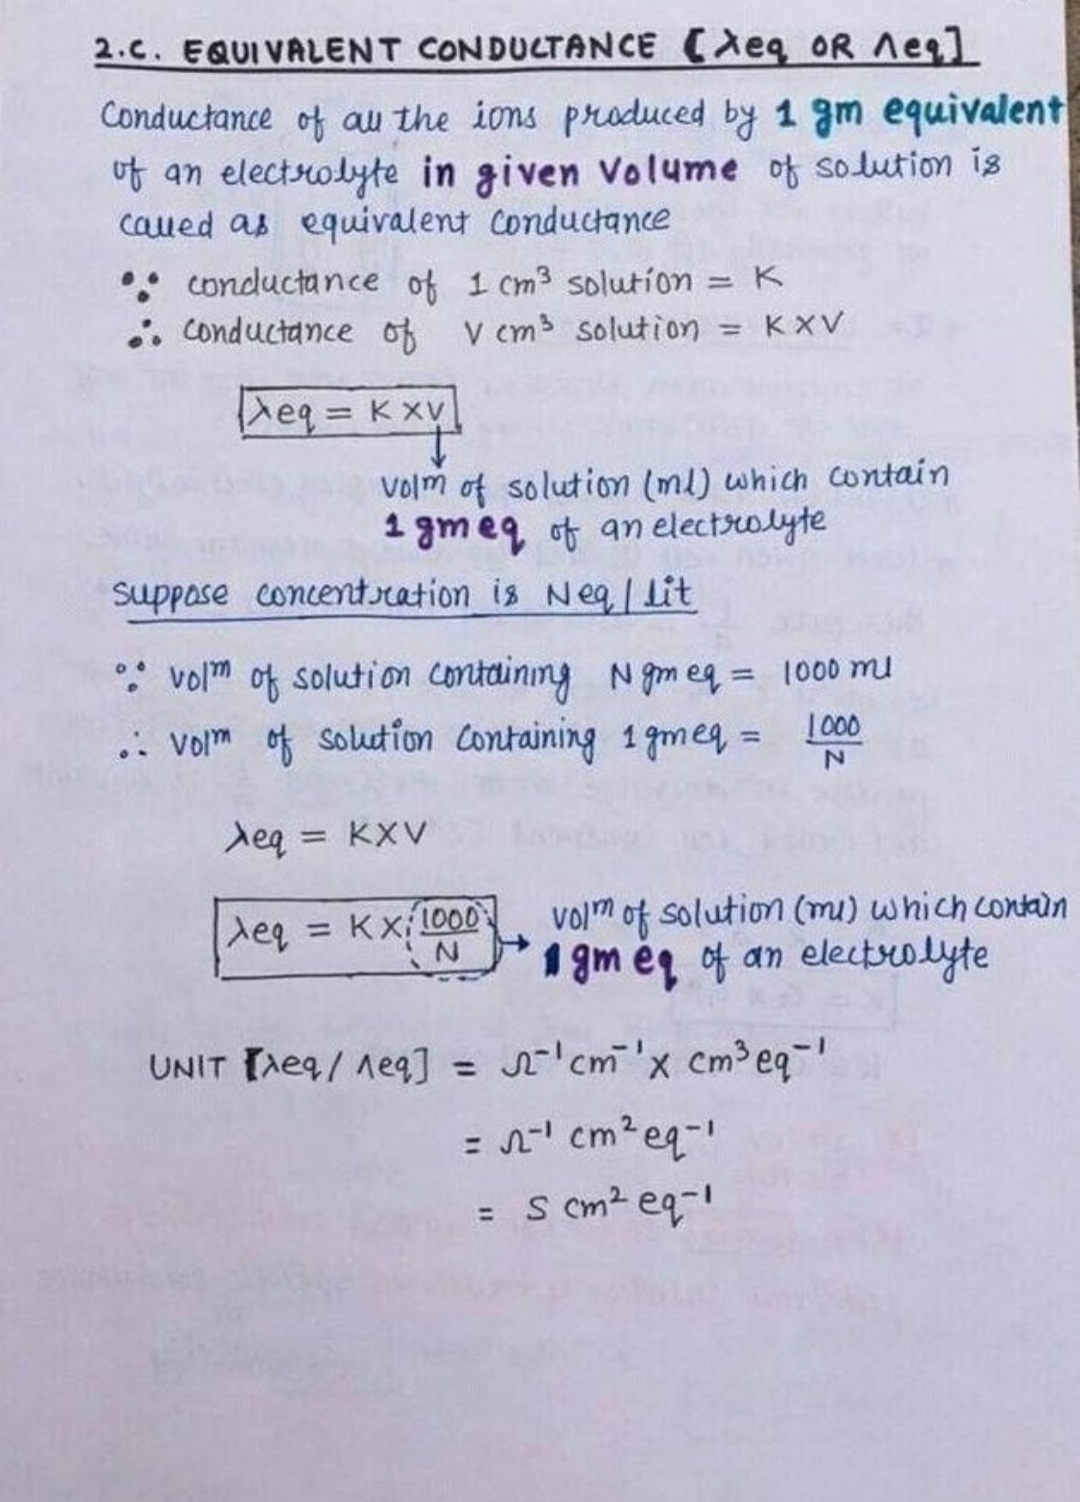 2.C. EQUIVALENT CONDUCTANCE [λeq OR Λeq]
Conductance of all the ions produced by 1 gm equivalent
of an electrolyte in given Volume of solution is
called as equivalent conductance
∵ conductance of 1 cm³ solution = K
∴ conductance of V cm³ solution = K×V
λeq = K×V
↓
volm of solution (ml) which contain
1 gmeq of an electrolyte
Suppose concentration is N eq / Lit
∵ volm of solution containing N gmeq = 1000 ml
∴ volm of solution containing 1 gmeq = 1000/N
λeq = K×V
λeq = K× 1000/N → volm of solution (ml) which contain
1 gm eq of an electrolyte
UNIT [λeq/Λeq] = Ω⁻¹cm⁻¹ × cm³eq⁻¹
= Ω⁻¹ cm² eq⁻¹
= S cm² eq⁻¹